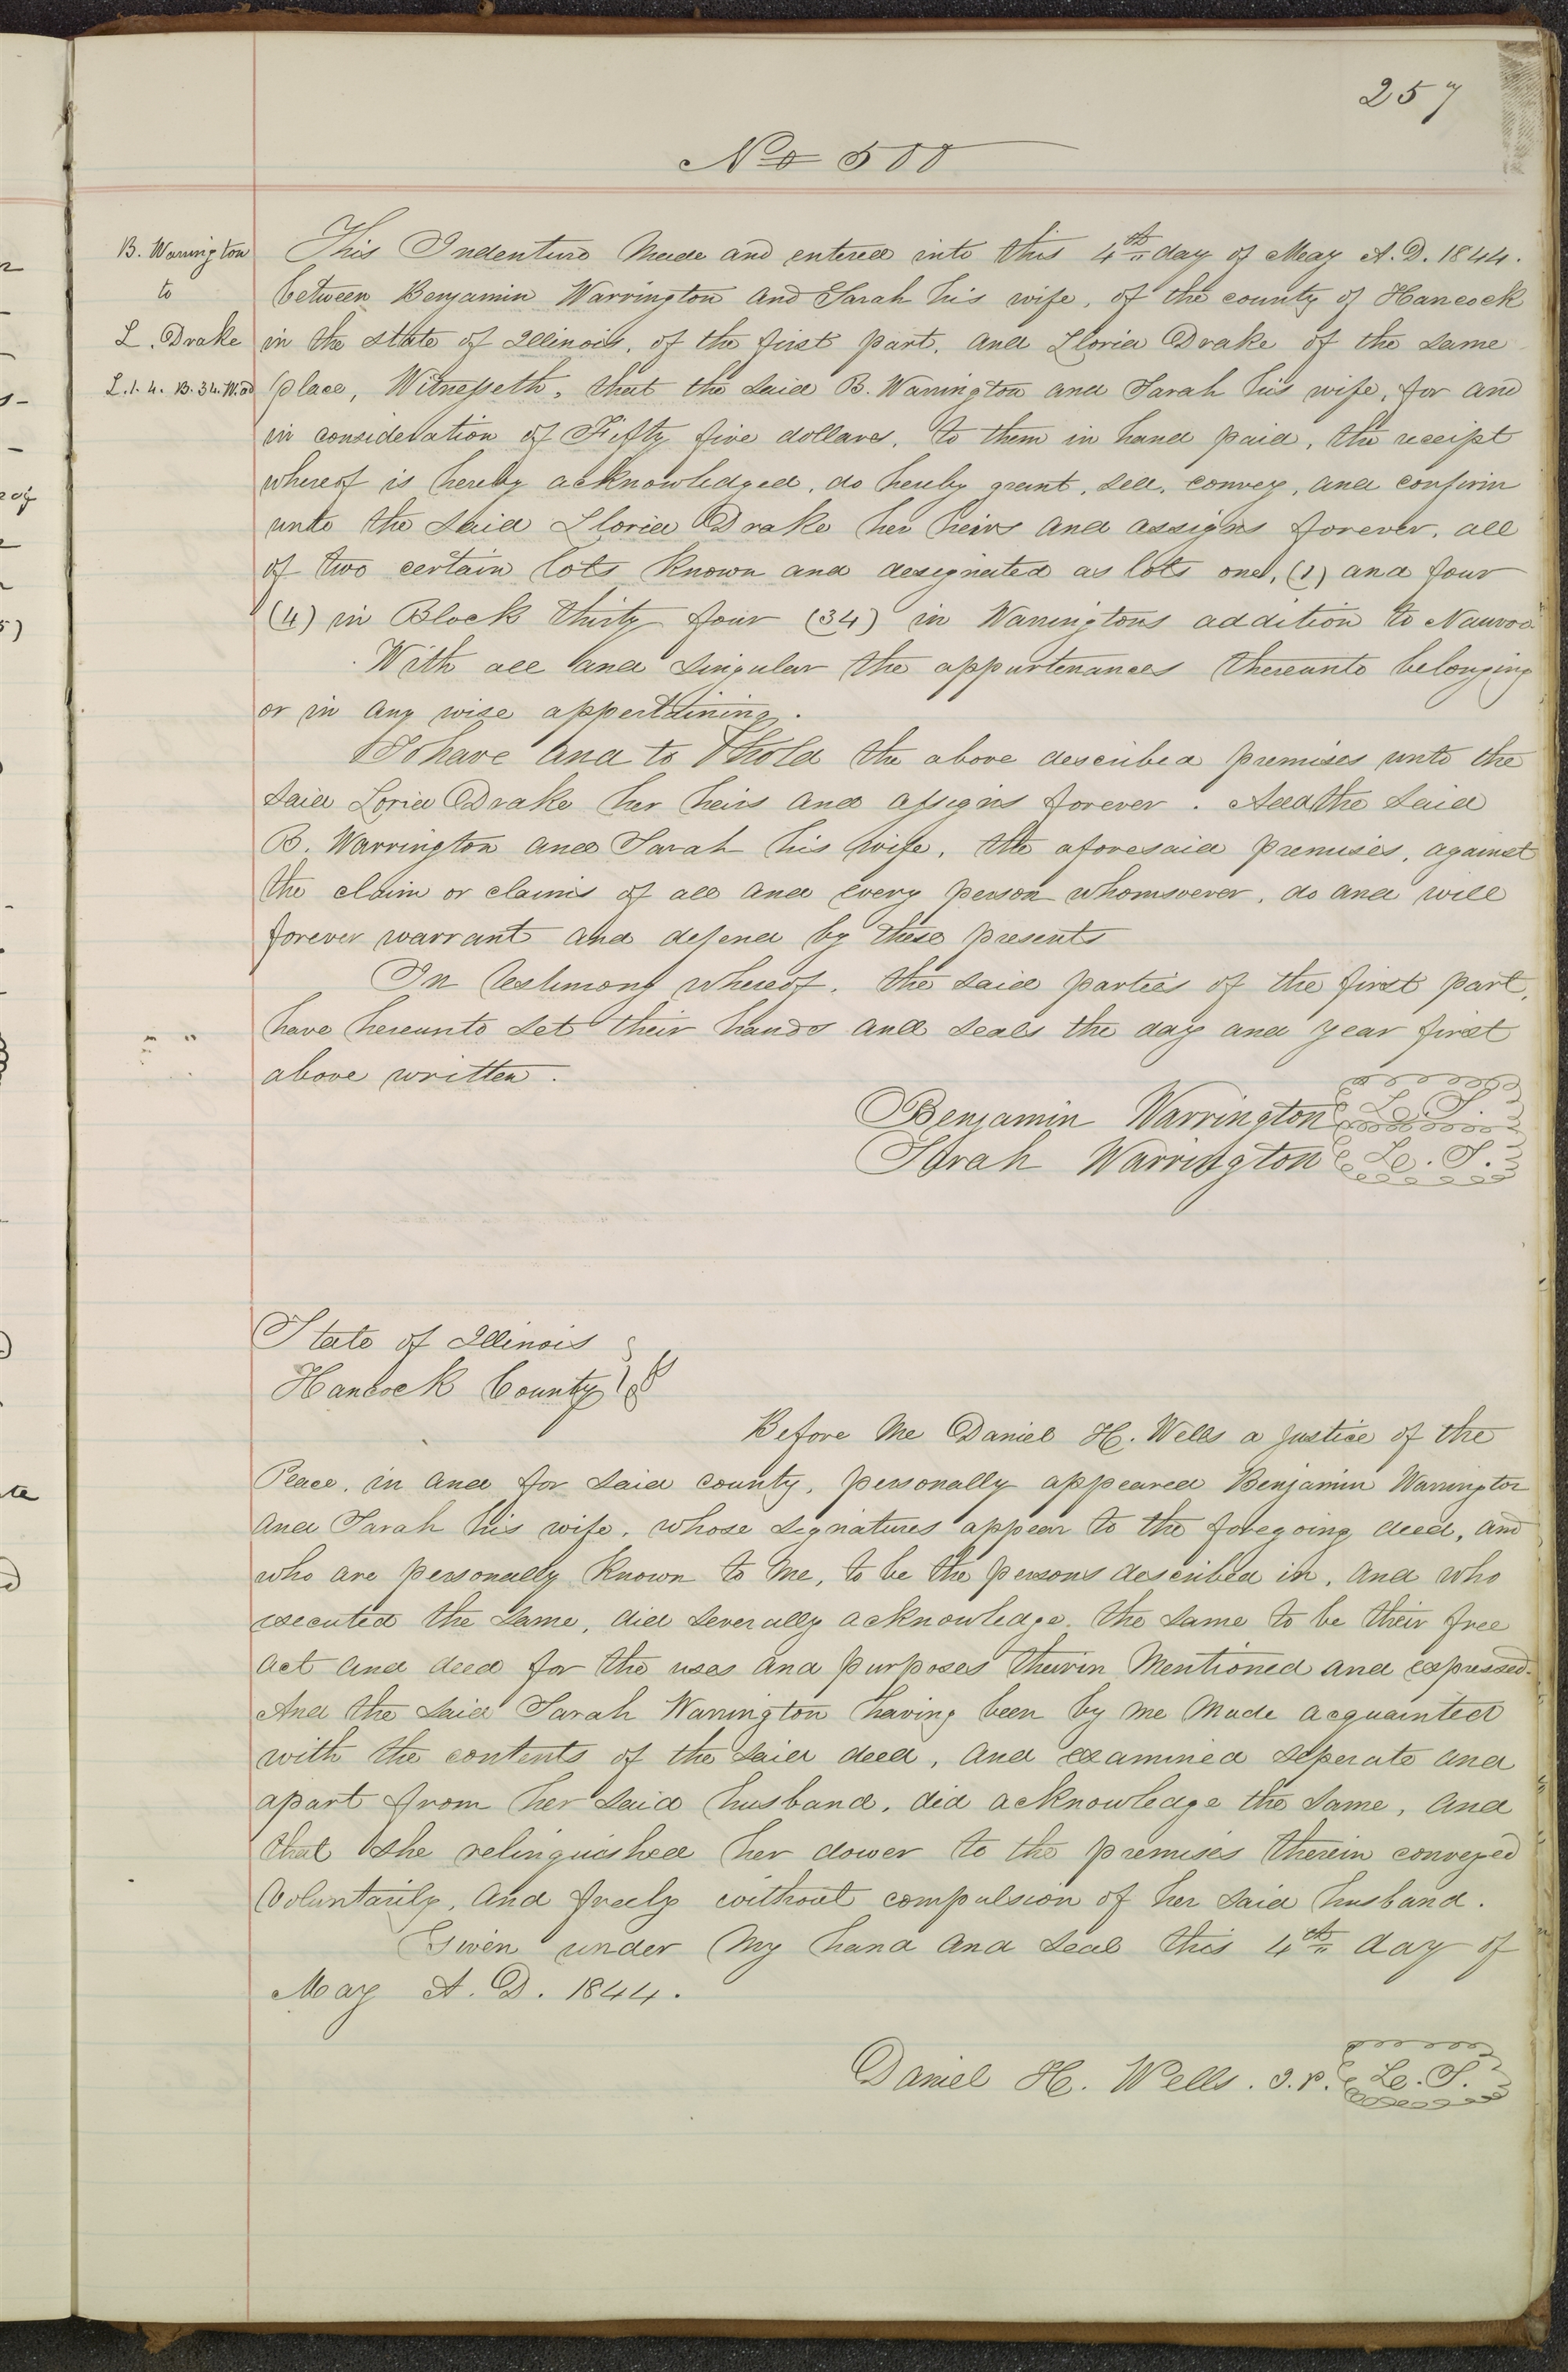 257
No 500
B. Warrington
to
L. Drake
L. 1. 4. B. 34. W. ad
This Indenture made and entered into this 4th day of May A.D. 1844.
between Benjamin Warrington and Sarah his wife, of the county of Hancock
in the state of Illinois, of the first part, and Lloria Drake of the same
place, Witnesseth, that the said B. Warrington and Sarah his wife, for and
in consideration of Fifty five dollars, to them in hand paid, the receipt
whereof is hereby acknowledged, do hereby grant, sell, convey, and confirm
unto the said Lloria Drake her heirs and assigns forever, all
of two certain lots known and designated as lots one, (1) and four
(4) in Block thirty four (34) in Warringtons addition to Nauvoo
With all and singular the appurtenances thereunto belonging
or in any wise appertaining.
To have and to hold the above described premises unto the
said Loria Drake her heirs and assigns forever. And the said
B. Warrington and Sarah his wife, the aforesaid premises, against
the claim or claims of all and every person whomsoever, do and will
forever warrant and defend by these presents
In testimony whereof, the said parties of the first part,
have hereunto set their hands and seals the day and year first
above written.
Benjamin Warrington L. S.
Sarah Warrington L. S.
State of Illinois
Hancock County } ss
Before me Daniel H. Wells a justice of the
Peace, in and for said county, personally appeared Benjamin Warrington
and Sarah his wife, whose signatures appear to the foregoing deed, and
who are personally known to me, to be the persons described in, and who
executed the same, did severally acknowledge, the same to be their free
act and deed for the uses and purposes therein mentioned and expressed.
And the said Sarah Warrington having been by me made acquainted
with the contents of the said deed, and examined seperate and
apart from her said husband, did acknowledge the same, and
that she relinquished her dower to the premises therein conveyed
voluntarily, and freely without compulsion of her said husband.
Given under my hand and seal this 4th day of
May A.D. 1844.
Daniel H. Wells. J.P. L. S.